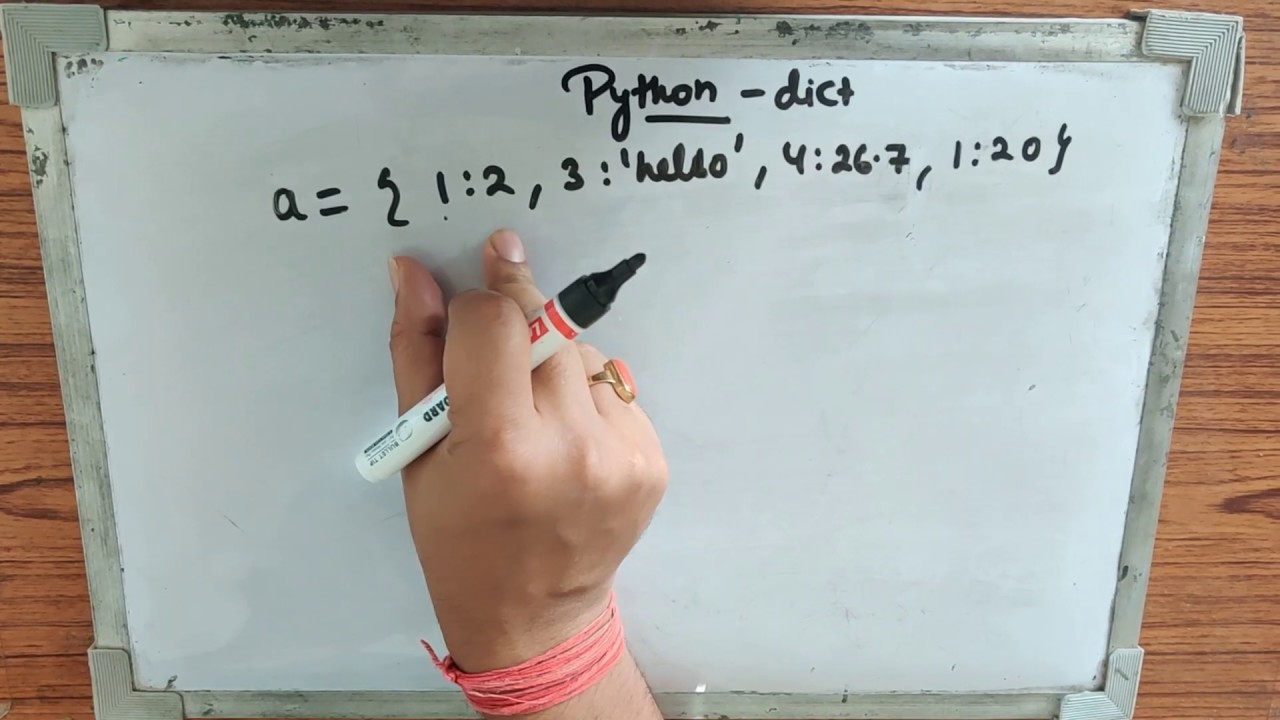 Python - dict
a = { 1:2, 3:'hello', 4:26.7, 1:20}
BOARD
BULLET TIP